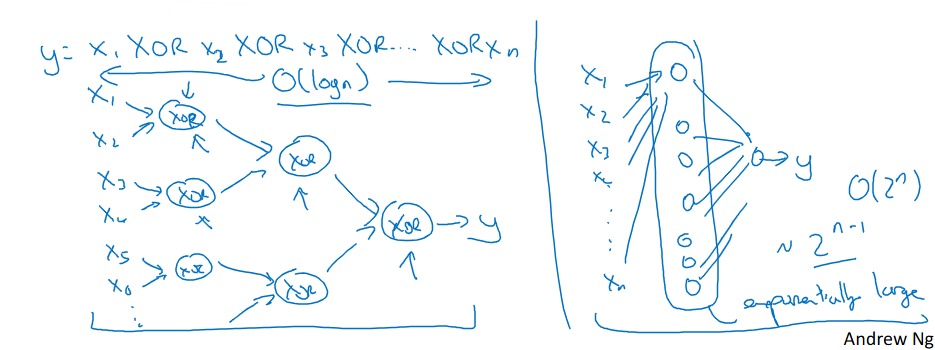 y = x₁ XOR x₂ XOR x₃ XOR .... XOR xₙ
O(logn)
x₁
x₂
XOR
x₃
x₄
XOR
x₅
x₆
XOR
XOR
XOR
XOR
y
x₁
x₂
x₃
xₙ
y
O(2ⁿ)
~ 2ⁿ⁻¹
exponentially large
Andrew Ng